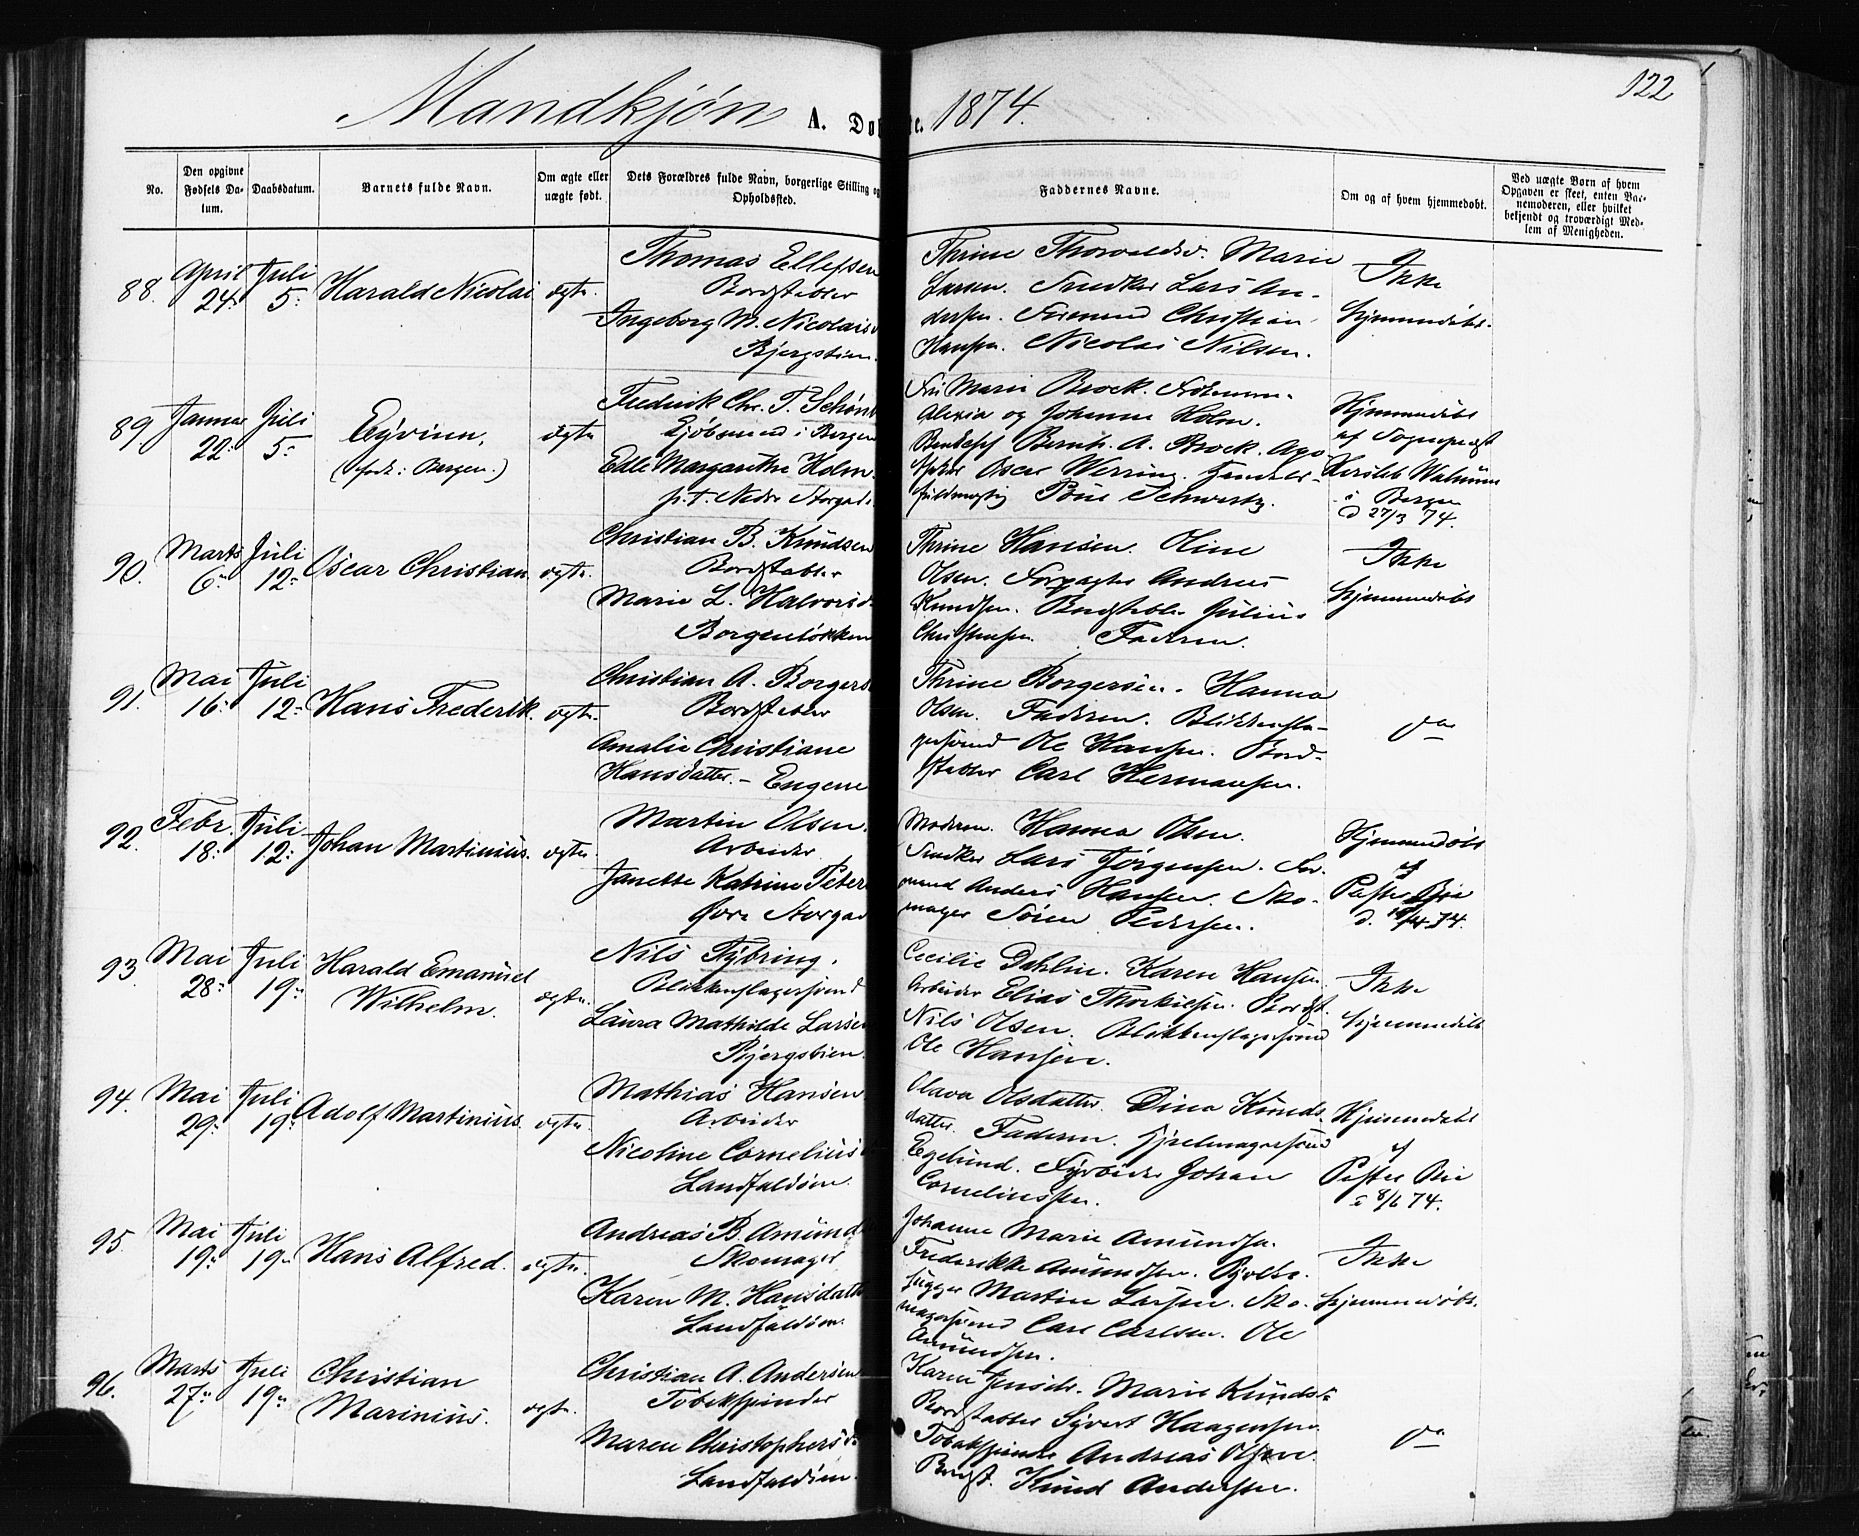 122
Mandkjøn A. Dø e. 1874.
No.
Den opgivne Fødsels Da-tum.
Daabsdatum.
Barnets fulde Navn.
Om ægte eller uægte født.
Dets Forældres fulde Navn, borgerlige Stilling og Opholdssted.
Faddernes Navne.
Om og af hvem hjemmedøbt.
Ved uægte Børn af hvem Opgaven er skeet, enten Bar-nemoderen, eller hvilket bekjendt og troværdigt Med-lem af Menigheden.
88. April 24. Juli 5. Harald Nicolai ægte.
Thomas Ellefsen
Bordstabler
Ingeborg M. Nicolaisd
Bjergstien.
Thrine Thorvaldsd. Marie
Larsen. Snedker Lars An-
dersen. Formand Christian
Hansen. Nicolai Nilsen.
Ikke
hjemmedøbt.
89 Januar 22. Juli 5. Eyvinn, ægte
(født: Bergen.)
Frederik Chr. T. Schøn
Kjøbmand i Bergen
Edle Margarethe Holm
p.t. Nedre Storgade
Frk Marie Brock. Frøknerne
Alexia og Johanne Holm.
Bernh. A. Brock. Apo-
theker Oscar Werring. Handels-
fuldmægtig Schwartz.
Hjemmedøbt
af Sogneprest
i Bergen
d 27/3 74.
90. Marts 6. Juli 12. Oscar Christian ægte.
Christian B. Knudsen
Bordstabler
Marie L. Halvorsd.
Borgenløkken
Thrine Hansen. Oline
Olsen. Forpagter Andreas
Knudsen. Bordstabler Julius
Christensen. Faderen.
Ikke
hjemmedøbt
91. Mai 16. Juli 12. Hans Frederik. ægte.
Christian A. Borgers
Bordstabler
Amalie Christiane
Hansdatter. - Engene
Thrine Borgersen. Hanna
Olsen. Faderen. Blikkensla-
gersvend Ole Hansen. Bord-
stabler Carl Hermansen.
do
92. Febr. 18. Juli 12. Johan Martinius. ægte.
Martin Olsen.
Arbeider
Janette Katrine Peter
Øvre Storgad
Moderen. Hanna Olsen.
Snedker Lars Jørgensen. For-
mand Anders Hansen. Sko-
mager Søren Pedersen.
Hjemmedøbt
af
Pastor Bie
d. /4 74.
93. Mai 28. Juli 19. Harald Emanuel
Wilhelm. ægte.
Nils Fybring.
Blikkenslagersvend
Laura Mathilde Larsen
Bjergstien.
Cecilie Dehlin. Karen Hansen.
Arbeider Elias Thorkilsen. Bordst.
Nils Olsen. Blikkenslagersvend
Ole Hansen.
Ikke
hjemmedøbt
94. Mai 29. Juli 19. Adolf Martinius. ægte.
Mathias Hansen
Arbeider
Nicoline Cornelius
Landfaldøen.
Olava Olsdatter. Dina Knuds-
datter. Faderen. Hjulmagersvend
Egelund. Fyrbøder Johan
Corneliussen.
Hjemmedøbt
af
Pastor Bie
d 8/6 74.
95. Mai 19. Juli 19. Hans Alfred. ægte.
Andreas B. Amund
Skomager
Karen M. Hansdatte
Landfaldøen.
Johanne Marie Amundsen.
Frederikke Amundsen.
Martin Larsen. Sko-
magersvend Carl Carlsen. Ole
Amundsen.
Ikke
hjemmedøbt.
96. Marts 27. Juli 19. Christian
Marinius. ægte.
Christian A. Andersen
Tobakspinder
Maren Christophersd.
Landfaldøen.
Karen Jensdr. Marie Knudsd.
Bordstabler Syvert Haagensen.
Tobakspinder Andreas
Bordst. Knud Andersen.
do